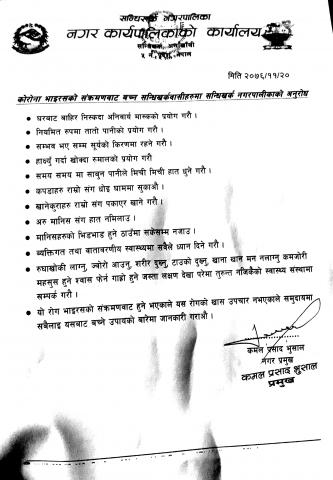 सन्धिखर्क नगरपालिका
नगर कार्यपालिकाको कार्यालय
सन्धिखर्क, अर्घाखाँची
५ नं. प्रदेश, नेपाल
मिति २०७६/११/२०
कोरोना भाइरसको संक्रमणबाट बच्न सन्धिखर्कवासीहरुमा सन्धिखर्क नगरपालीकाको अनुरोध
• घरबाट बाहिर निस्कदा अनिवार्य मास्कको प्रयोग गरौ ।
• नियमित रुपमा तातो पानीको प्रयोग गरौ ।
• सम्भव भए सम्म सूर्यको किरणमा रहने गरौ ।
• हाच्युँ गर्दा खोक्दा रुमालको प्रयोग गरौ
• समय समय मा साबुन पानीले मिची मिची हात धुने गरौ ।
• कपडाहरु राम्रो संग धोइ घाममा सुकाऔ ।
• खानेकुराहरु राम्रो संग पकाएर खाने गरौ ।
• अरु मानिस संग हात नमिलाउ ।
• मानिसहरुको भिडभाड हुने ठाउँमा सकेसम्म नजाउ ।
• ब्यक्तिगत तथा वातावरणीय स्वास्थ्यमा सबैले ध्यान दिने गरौ ।
• रुघाखोकी लाग्नु, ज्वोरो आउनु, शरीर दुख्नु, टाउको दुख्नु, खाना खान मन नलाग्नु कमजोरी
महसुस हुने श्वास फेर्न गाह्रो हुने जस्ता लक्षण देखा परेमा तुरुन्त नजिकैको स्वास्थ्य संस्थामा
सम्पर्क गरौ ।
• यो रोग भाइरसको संक्रमणबाट हुने भएकाले यस रोगको खास उपचार नभएकाले समुदायमा
सबैलाइ यसबाट बच्ने उपायको बारेमा जानकारी गराऔ ।
कमल प्रसाद भुसाल
नगर प्रमुख
कमल प्रसाद भुसाल
प्रमुख